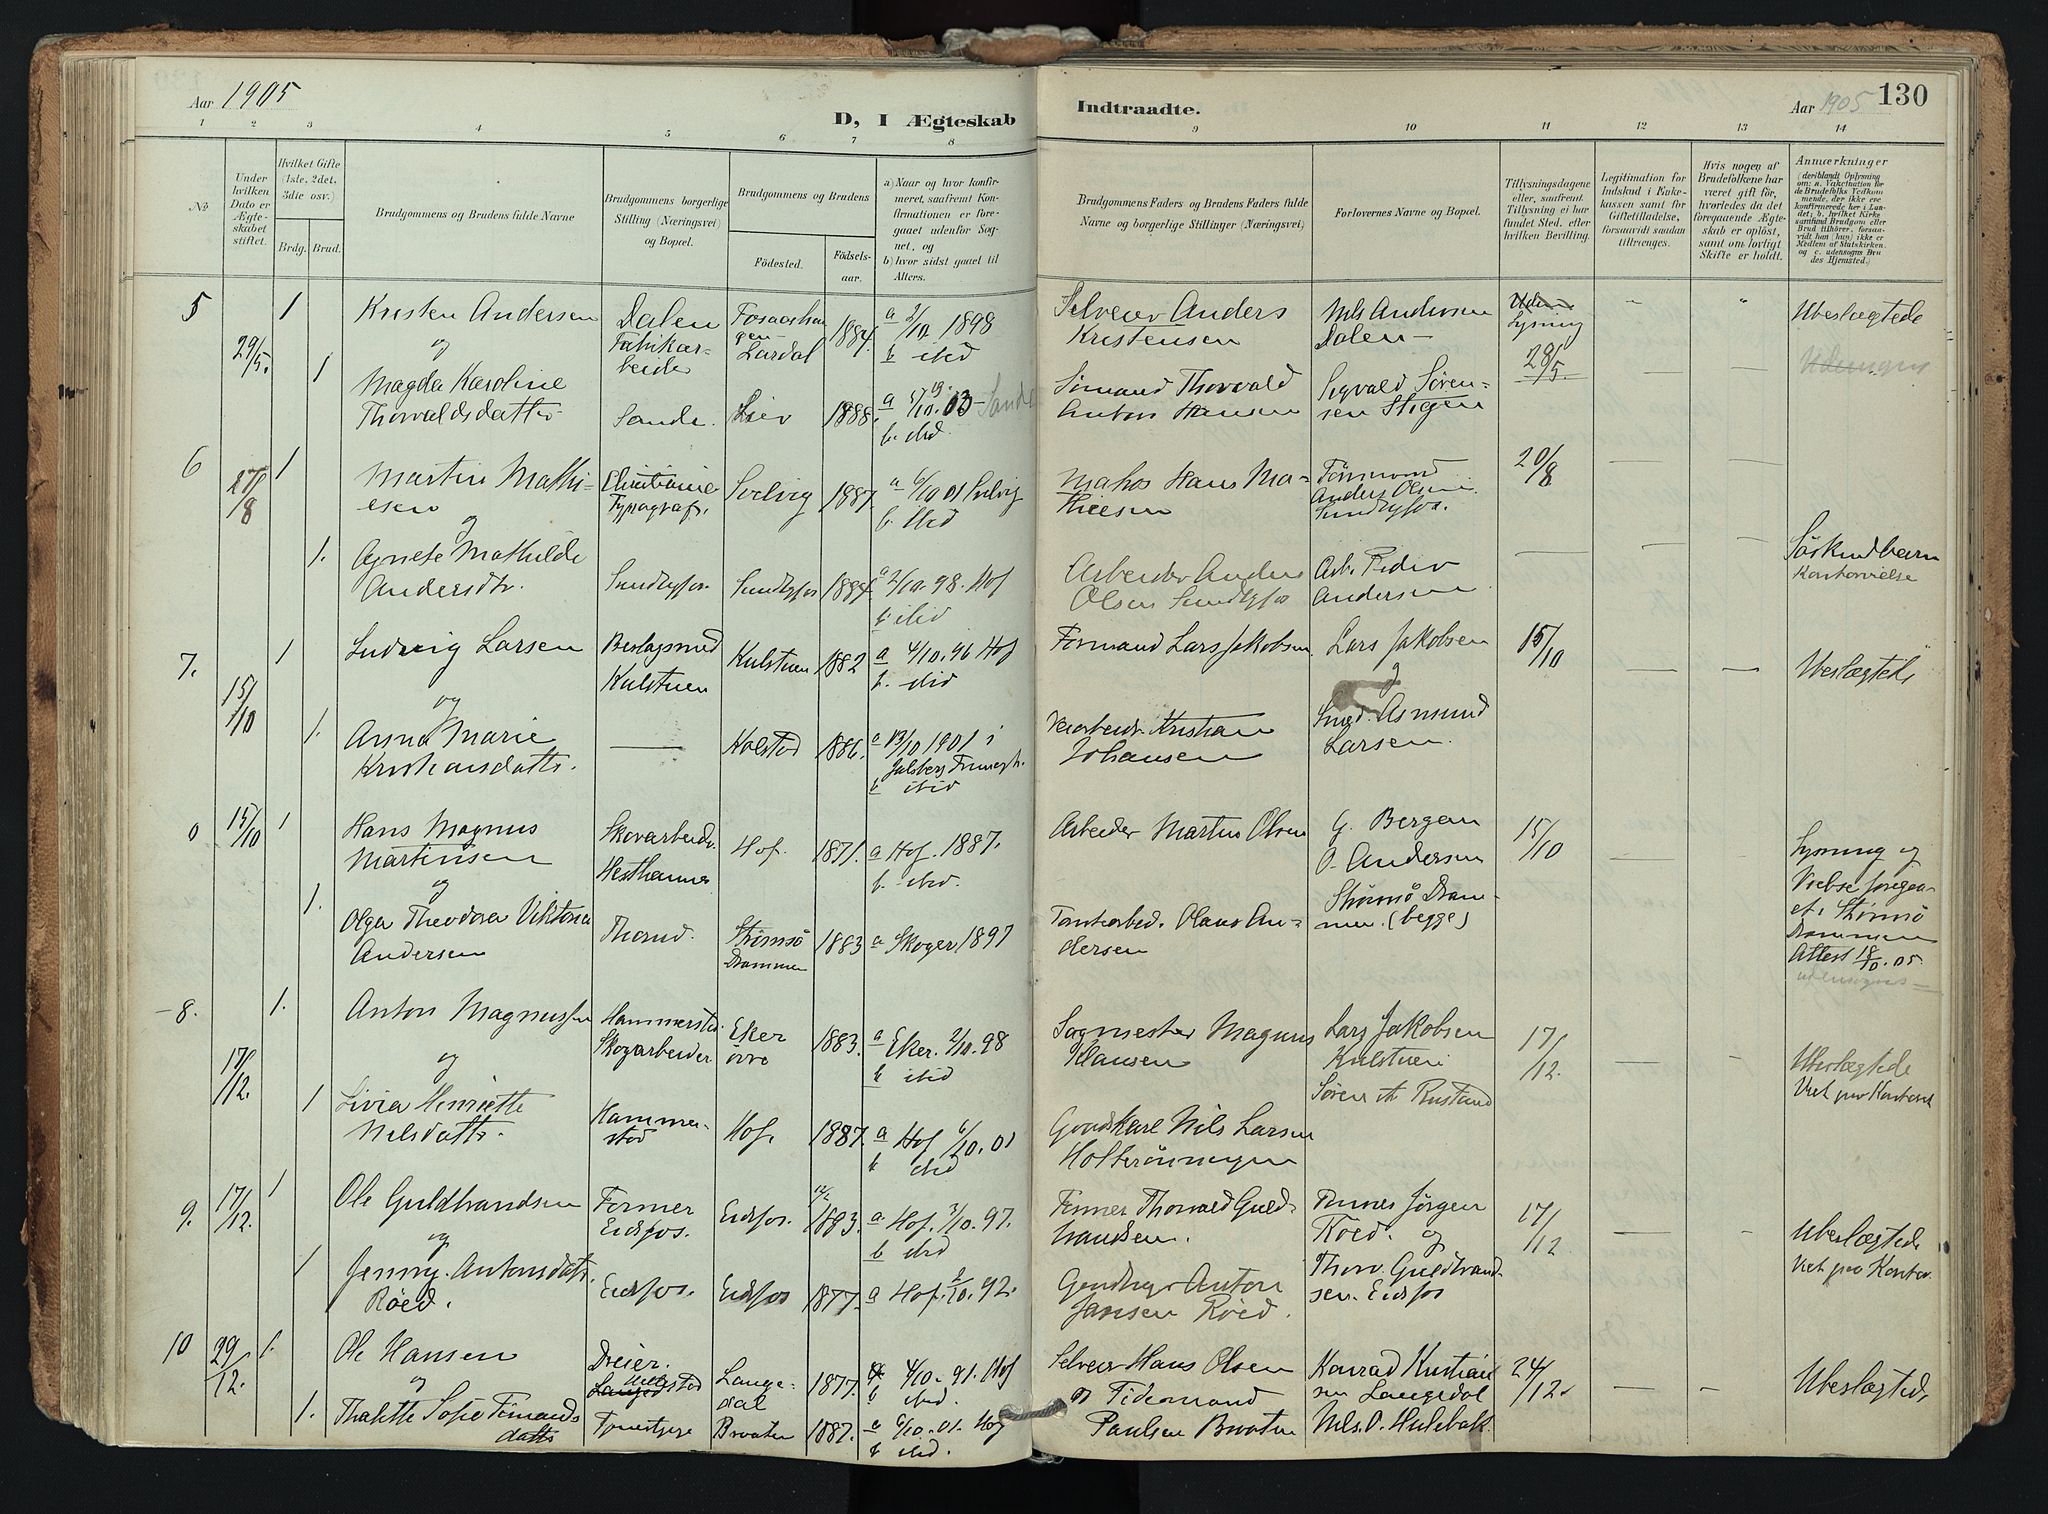 Aar 1905
D, I Ægteskab
Indtraadte.
Aar 1905
130
1 2 3 4 5 6 7 8 9 10 11 12 13 14
No
Under hvilken Dato er Ægteskabet stiftet.
Hvilket Gifte (1ste, 2det, 3die osv.)
Brdg. Brud.
Brudgommens og Brudens fulde Navne
Brudgommens borgerlige Stilling (Næringsvei) og Bopæl.
Brudgommens og Brudens
Födested.
Födselsaar.
a) Naar og hvor konfirmeret, saafremt Konfirmationen er foregaaet udenfor Sognet, og
b) hvor sidst gaaet til Alters.
Brudgommens Faders og Brudens Faders fulde Navne og borgerlige Stillinger (Næringsvei)
Forlovernes Navne og Bopæl.
Tillysningsdagene eller, saafremt Tillysning ei har fundet Sted, efter hvilken Bevilling.
Legitimation for Indskud i Enkekassen samt for Giftetilladelse, forsaavidt saadan tiltrænges.
Hvis nogen af Brudefolkene har været gift för, hvorledes da det foregaaende Ægteskab er oplöst, samt om lovligt Skifte er holdt.
Anmærkninger (deriblandt Oplysning om: a. Vakcination for de Brudefolks Vedkommende, der ikke ere konfirmerede her i Landet; b. hvilket Kirkesamfund Brudgom eller Brud tilhörer, forsaavidt han (hun) ikke er Medlem af Statskirken, og c. udensogns Brudes Hjemsted.)
5
29/5.
1
Kristen Andersen
og
Dalen
Fabrikarbeider
Lardal
1884.
a 2/10. 1898
b ibid
Selveier Anders
Kristensen
Nils Andersen
Dalen
Lysning
28/5.
Ubeslægtede
1
Magda Karoline
Thorvaldsdatter
Sande.
Lier
1888.
b. ibid.
Sömand Thorvald
Anton Hansen
Sigvald Sörensen Stegen
6
27/8
1
Martin Mathisen
og
Typograf.
Svelvig
1887.
a 6/10 01 Svelvig
b. ibid
Hans Mathiesen
Anders Olsen
Sundbyfos.
20/8
1.
Agnete Mathilde
Andersdtr.
Sundbyfos.
Sundbyfos
1884
a 2/10. 98. Hof
b ibid
Arbeider Anders
Olsen Sundbyfos
Arb. Peder
Andersen
Söskendbarn
7.
15/10
1
Ludvig Larsen
og
Beslagsmed
Kulstuen
Kulstuen
1882
a 4/10. 96 Hof
b. ibid
Formand Lars Jakobsen
Lars Jakobsen
og
15/10
Ubeslægtede
1.
Anna Marie
Kristiansdatter.
Holstad
1886.
a 13/10 1901 i
Jalsberg
b ibid
Veiarbeider Kristian
Johansen
Smed. Asmund
Larsen.
0
15/10
1
Hans Magnus
Martinsen
og
Skovarbeider
Hesthammer
Hof.
1871.
a Hof. 1887.
b. ibid.
Arbeider Martin Olsen
G. Bergan
O. Andersen
Strömsö Drammen. (begge)
15/10
Lysning og
Vielse foregaaet i Strömsö
Drammen
Attest 18/10. 05.
udensogns
1.
Olga Theodora Viktoria
Andersen
Thorud.
Strömsö
Drammen
1883
a Skoger 1897
Tomtearbed. Olaus Andersen
8.
17/12.
1.
Anton Magnussen
og
Hammerstad
Skogarbeider
Eker
övre
1883.
a Eker. 2/10. 98
b ibid
Sagmester Magnus
Hansen
Lars Jakobsen
Kulstuen
Sören A Rustand
17/12.
Ubeslægtede
Viet paa Kontoret
1
Livia Henriette
Nilsdatter.
Hammerstad
Hof.
1887.
a Hof 6/10. 01
b ibid
Gaardskarl Nils Larsen
Holterönningen
9.
17/12.
1
Ole Guldbrandsen
og
Former
Eidsfos.
Eidsfos.
12/2 1883.
a Hof. 3/10. 97.
b ibid
Former Thorvald Guldbrandsen.
Jörgen
Röed. og
17/12
Ubeslægtede
Viet paa Kontor.
1
Jenny Antonsdatr.
Röed.
Eidsfos.
Eidsfos
1877.
a Hof. 2/10. 92.
Anton
Jansen Röed.
Thorv. Guldbrandsen. Eidsfos
10
29/12.
1.
Ole Hansen
og
Dreier.
Langedal
1877.
a 4/10. 91. Hof
b ibid.
Selveier Hans Olsen
og Tidemand
Konrad Kristiansen Langedal
24/12.
Ubeslægtede
1.
Thalette Sofie Timandsdatter
Tjenestpige
Braaten
1887.
a 6/10. 01. Hof
b ibid.
Paulsen Braaten
Nils. O. Hulebak.